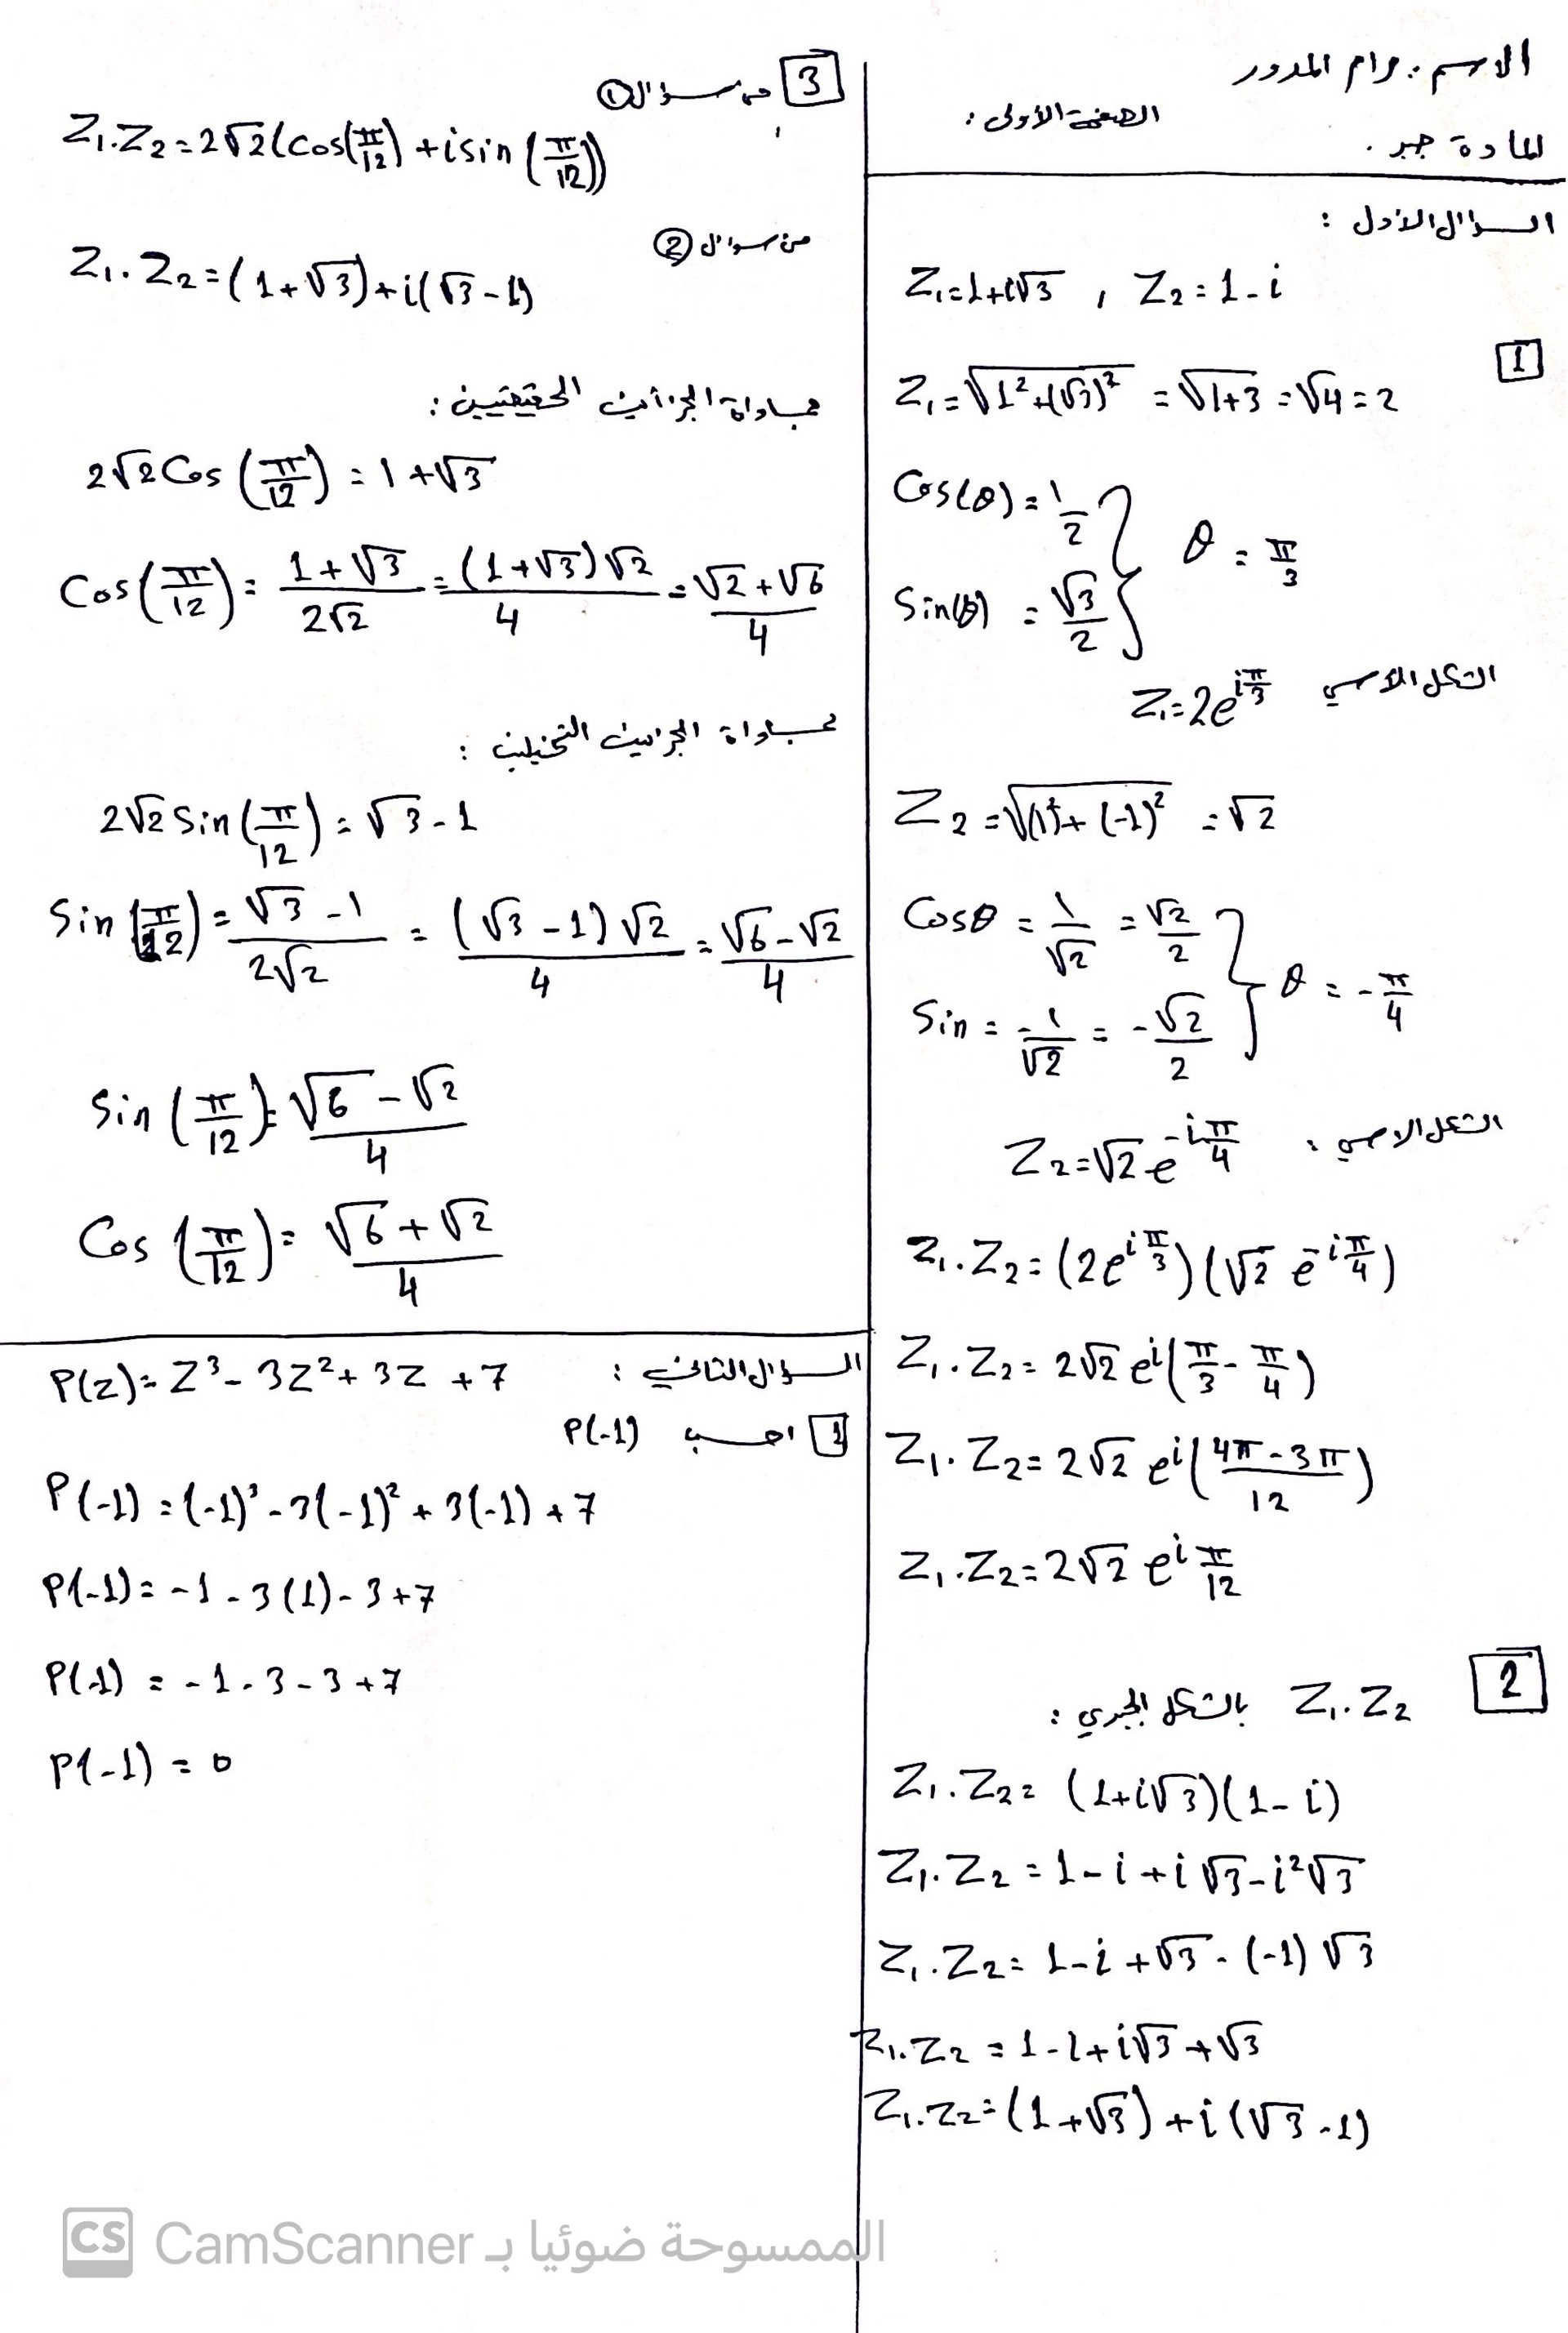 الاسم : مرام المدور
الصفحة الأولى :
المادة جبر .
السؤال الأول :
Z₁=1+i√3 , Z₂=1-i
1
Z₁=√(1²+(√3)²) =√(1+3) =√4=2
Cos(θ)=1/2
Sin(θ) =√3/2
θ = π/3
الشكل الاسي Z₁=2e^(iπ/3)
Z₂=√((1)²+(-1)²) =√2
Cosθ =1/√2 =√2/2
Sin =-1/√2 =-√2/2
θ =-π/4
الشكل الاسي : Z₂=√2 e^(-iπ/4)
Z₁.Z₂=(2e^(iπ/3))(√2 e^(-iπ/4))
Z₁.Z₂=2√2 e^i(π/3-π/4)
Z₁.Z₂=2√2 e^i((4π-3π)/12)
Z₁.Z₂=2√2 e^i π/12
2 Z₁.Z₂ بالشكل الجبري :
Z₁.Z₂= (1+i√3)(1-i)
Z₁.Z₂ =1-i+i√3-i²√3
Z₁.Z₂=1-i+√3-(-1)√3
Z₁.Z₂ =1-i+i√3+√3
Z₁.Z₂=(1+√3)+i(√3-1)
3 من سؤال ①
Z₁.Z₂=2√2(cos(π/12)+isin(π/12))
من سؤال ②
Z₁.Z₂=(1+√3)+i(√3-1)
مساواة الجزأين الحقيقيين :
2√2Cos(π/12)=1+√3
Cos(π/12)=(1+√3)/(2√2)=((1+√3)√2)/4=(√2+√6)/4
مساواة الجزئين التخيلين :
2√2Sin(π/12)=√3-1
Sin(π/12)=(√3-1)/(2√2)=((√3-1)√2)/4=(√6-√2)/4
Sin(π/12)=(√6-√2)/4
Cos(π/12)=(√6+√2)/4
السؤال الثاني : P(z)=Z³-3Z²+3Z+7
1 احسب P(-1)
P(-1)=(-1)³-3(-1)²+3(-1)+7
P(-1)=-1-3(1)-3+7
P(-1)=-1-3-3+7
P(-1)=0
CS CamScanner الممسوحة ضوئيا بـ